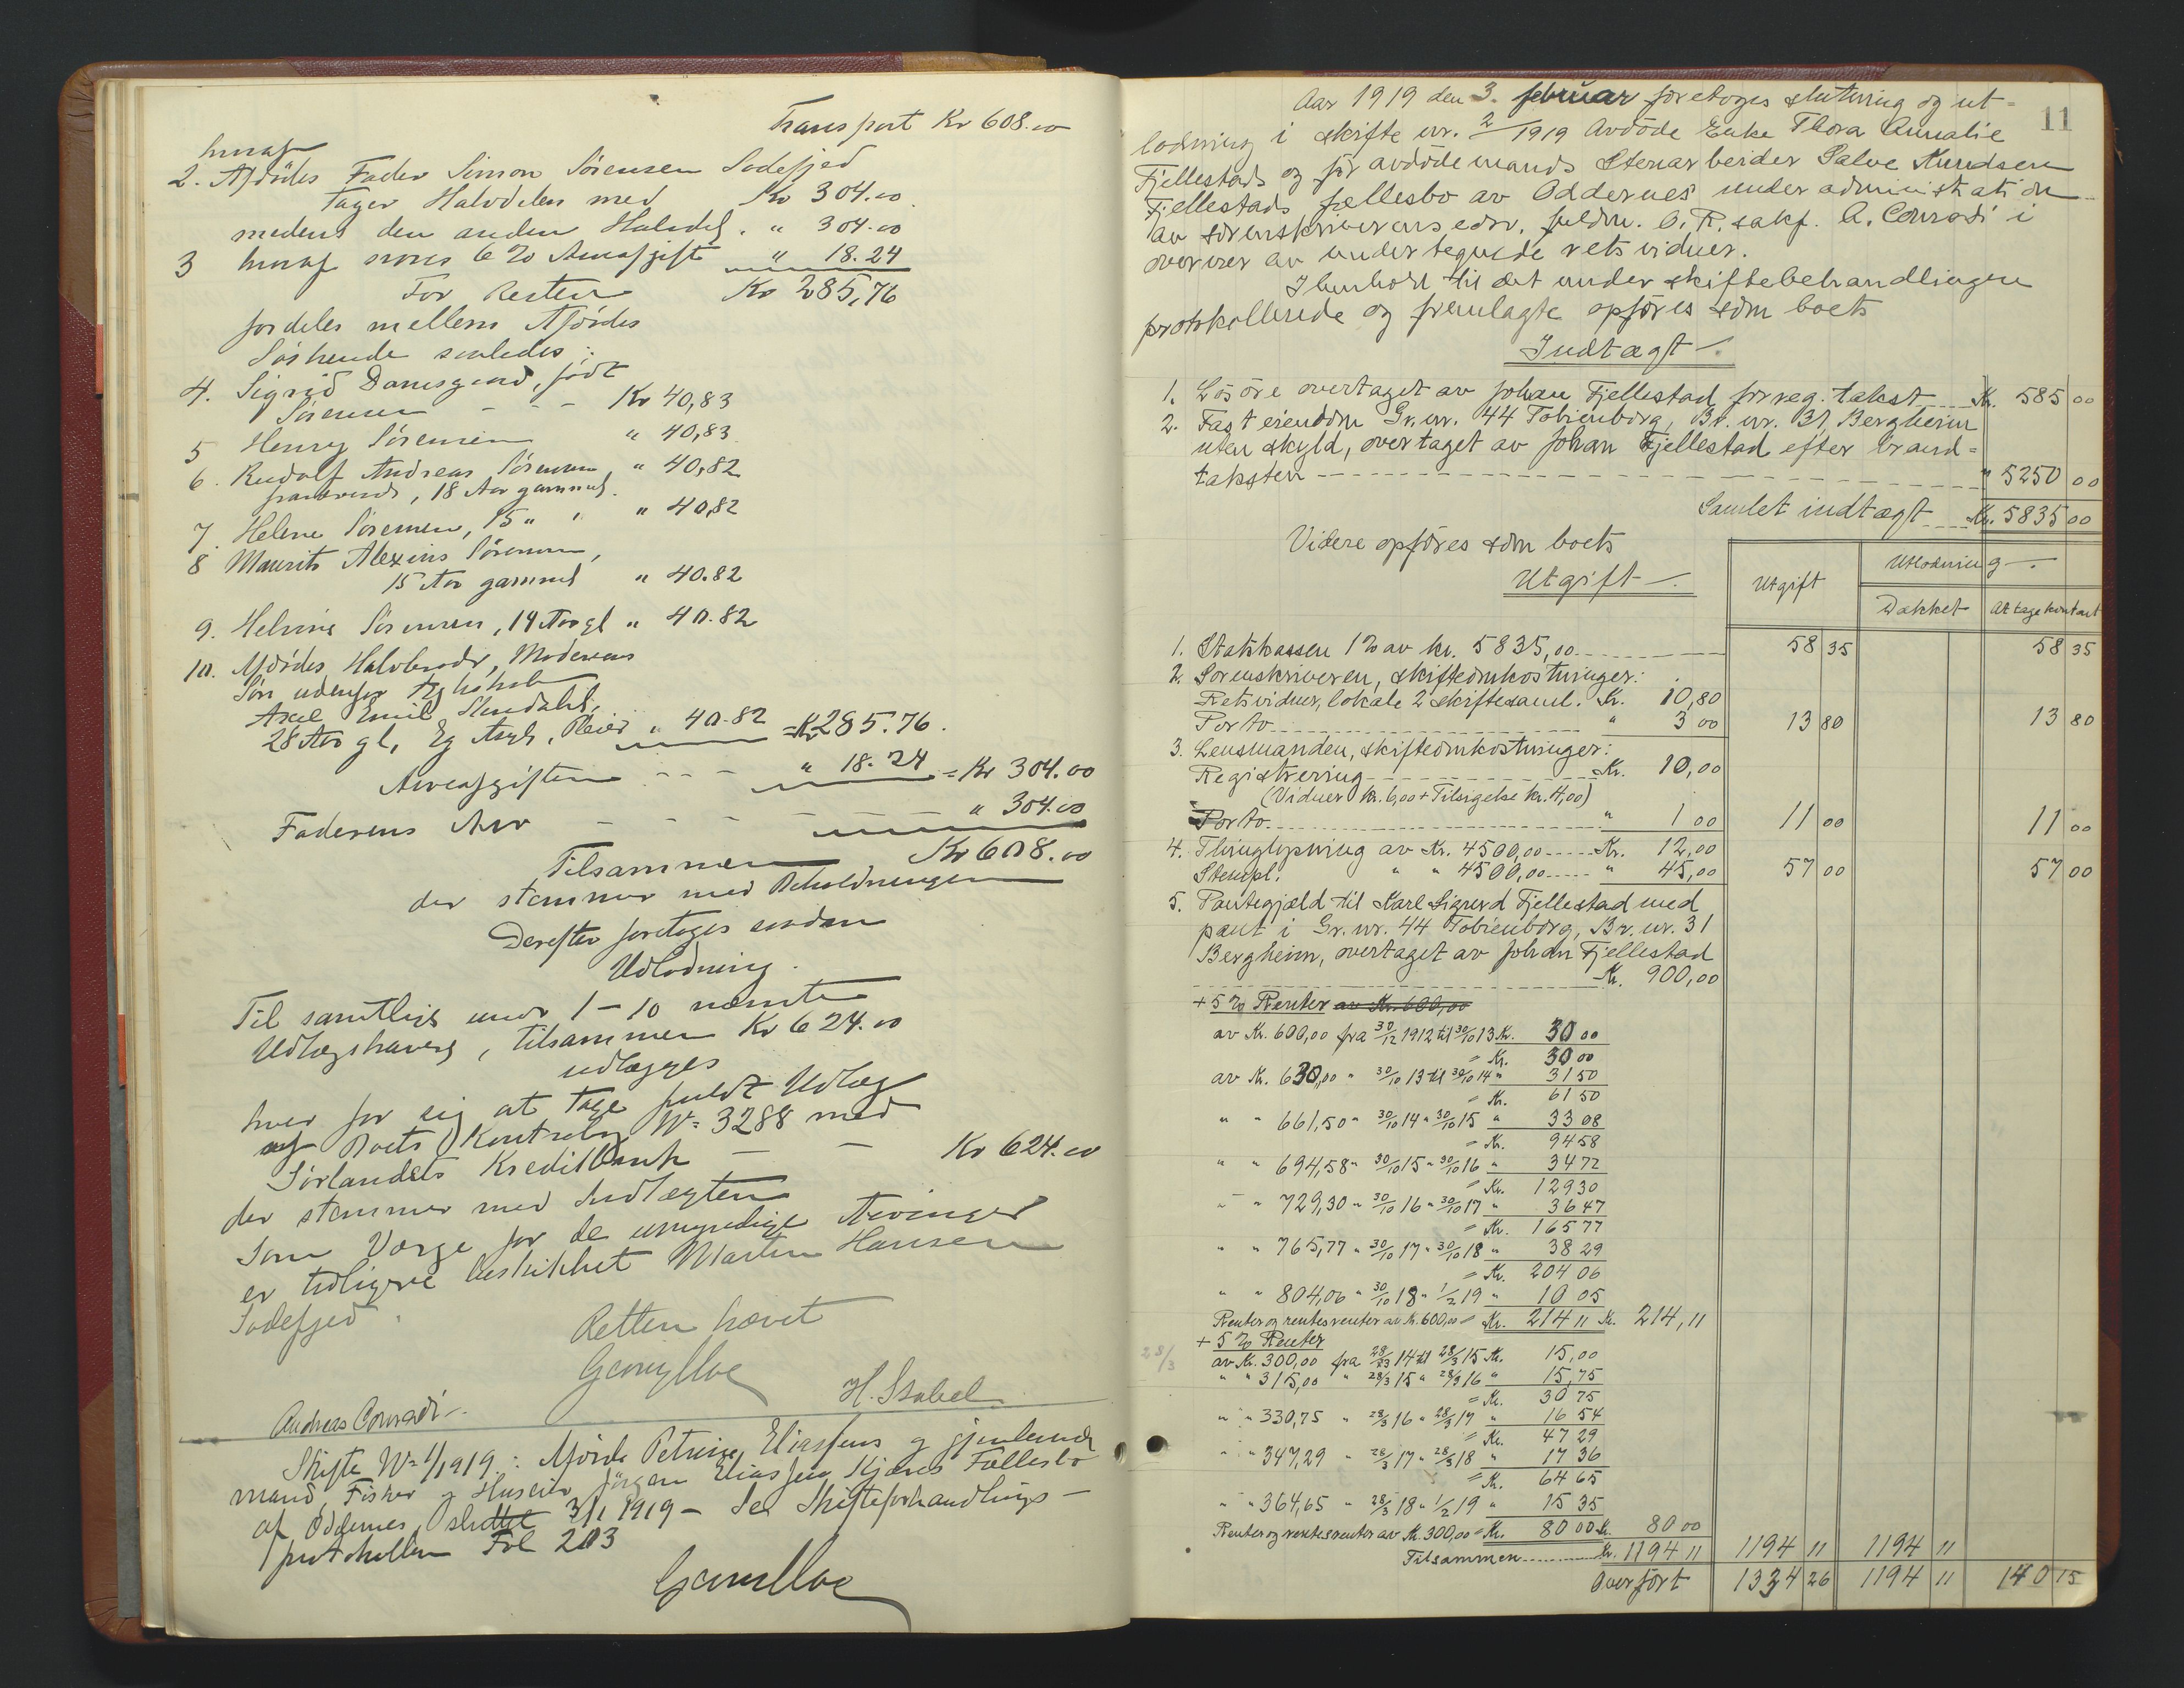 Transport Kr 608.00
hvoraf
2. Afdødes Fader Simon Sörensen Sodefjed
tager Halvdelen med Kr 304.00
medens den anden Halvdel " 304.00
3 hvoraf svares 6 % Arveafgift " 18.24
For Resten Kr 285,76
fordeles mellem Afdødes
Söskende saaledes:
4. Sigrid Damsgaard, född
Sörensen - - - Kr 40,83
5 Henry Sörensen " 40,83
6. Rudolf Andreas Sörensen, " 40,82
fraværende, 18 Aar gammel.
7. Helene Sörensen, 15 " " " 40,82
8 Maurits Alexius Sörensen,
15 Aar gammel " 40.82
9. Helvine Sörensen, 14 Aar gl " 40.82
10. Afdødes Halvbroder, Moderens
Sön udenfor Ægteskab
Axel Emil
28 Aar gl, Eg " 40.82 = Kr 285.76.
Arveafgiften - - - " 18.24 = Kr 304.00
Faderens Arv - - - - - " 304.00
Tilsammen Kr 608.00
der stemmer med Beholdningen
Derefter foretoges saadan
Udlodning.
Til samtlige under 1-10 nævnte
Udlægshavere, tilsammen Kr 624.00
udlægges
hver for sig at tage fuldt Udlæg
af Boets Kontrabog No 3288 med
Sörlandets Kreditbank - - Kr 624.00
der stemmer med Indtægten
Som Værge for de umyndige Arvinger
er tidligere beskikket Martin Hansen
Sodefjed.
Retten hævet
H. Stabel
Andreas Conradi
Skifte No 1/1919: Afdøde Petrine Eliassens og gjenlevende
mand, Fisker og Huseier Jörgen Eliassen Kjæres Fællesbo
af Oddernes, sluttet 3/1 1919 - Se Skifteforhandlings-
protokollen Fol 203
11
Aar 1919 den 3. februar foretoges slutning og ut-
lodning i skifte nr. 2/1919 Avdöde Enke Thora Amalie
Fjellestads og før avdöde mands Stenarbeider Salve Knudsen
Fjellestads fællesbo av Oddernes under administration
av sorenskriverens edsv. fuldm. O. R. sakf. A. Conradi i
overvær av undertegnede retsvidner.
I henhold til det under skiftebehandlingen
protokollerede og fremlagte opføres som boets
Indtægt
1. Lösöre overtaget av Johan Fjellestad for reg. takst Kr. 585 00
2. Fast eiendom Gr. nr. 44 Tobienborg, Br. nr. 31 Bergheim
uten skyld, overtaget av Johan Fjellestad efter brand-
taksten " 5250 00
Samlet indtægt Kr. 5835 00
Videre opføres som boets
Utgift
Utgift Utlodning
Dækket At tage kontant
1. Statskassen 1 % av kr. 5835,00 58 35 58 35
2. Sorenskriveren, skifteomkostninger:
Retsvidner, lokale 2 skiftesaml. Kr. 10,80
Porto " 3 00 13 80 13 80
3. Lensmanden, skifteomkostninger:
Registrering Kr. 10,00
(Vidner kr. 6,00 + Tilsigelse kr. 4,00)
Porto " 1 00 11 00 11 00
4. Thinglysning av Kr. 4500,00 Kr. 12,00
Stempl. " " 4500,00 " 45,00 57 00 57 00
5. Pantegjæld til Karl Sigurd Fjellestad med
pant i Gr. nr. 44 Tobienborg, Br. nr. 31
Bergheim, overtaget av Johan Fjellestad
Kr. 900,00
+ 5 % Renter av Kr. 600,00
av Kr. 600,00 fra 30/12 1912 til 30/10 13 Kr. 30 00
= Kr. 30 00
av Kr. 630,00 " 30/10 13 til 30/10 14 " 31 50
= Kr. 61 50
" " 661,50 " 30/10 14 " 30/10 15 " 33 08
= Kr. 94 58
" " 694,58 " 30/10 15 " 30/10 16 " 34 72
= Kr. 129 30
" " 729,30 " 30/10 16 " 30/10 17 " 36 47
= Kr. 165 77
" " 765,77 " 30/10 17 " 30/10 18 " 38 29
= Kr. 204 06
" " 804,06 " 30/10 18 " 1/2 19 " 10 05
Renter og rentesrenter av Kr. 600,00 = Kr. 214 11 Kr. 214,11
+ 5 % Renter
28/3
av Kr. 300,00 fra 28/3 14 til 28/3 15 Kr. 15,00
" " 315,00 " 28/3 15 " 28/3 16 " 15,75
= Kr. 30 75
" " 330,75 " 28/3 16 " 28/3 17 " 16 54
= Kr. 47 29
" " 347,29 " 28/3 17 " 28/3 18 " 17 36
= Kr. 64 65
" " 364,65 " 28/3 18 " 1/2 19 " 15 35
Renter og rentesrenter av Kr. 300,00 = Kr. 80 00 Kr. 80 00
Tilsammen Kr. 1194 11 1194 11 1194 11
Overført 1334 26 1194 11 140 15